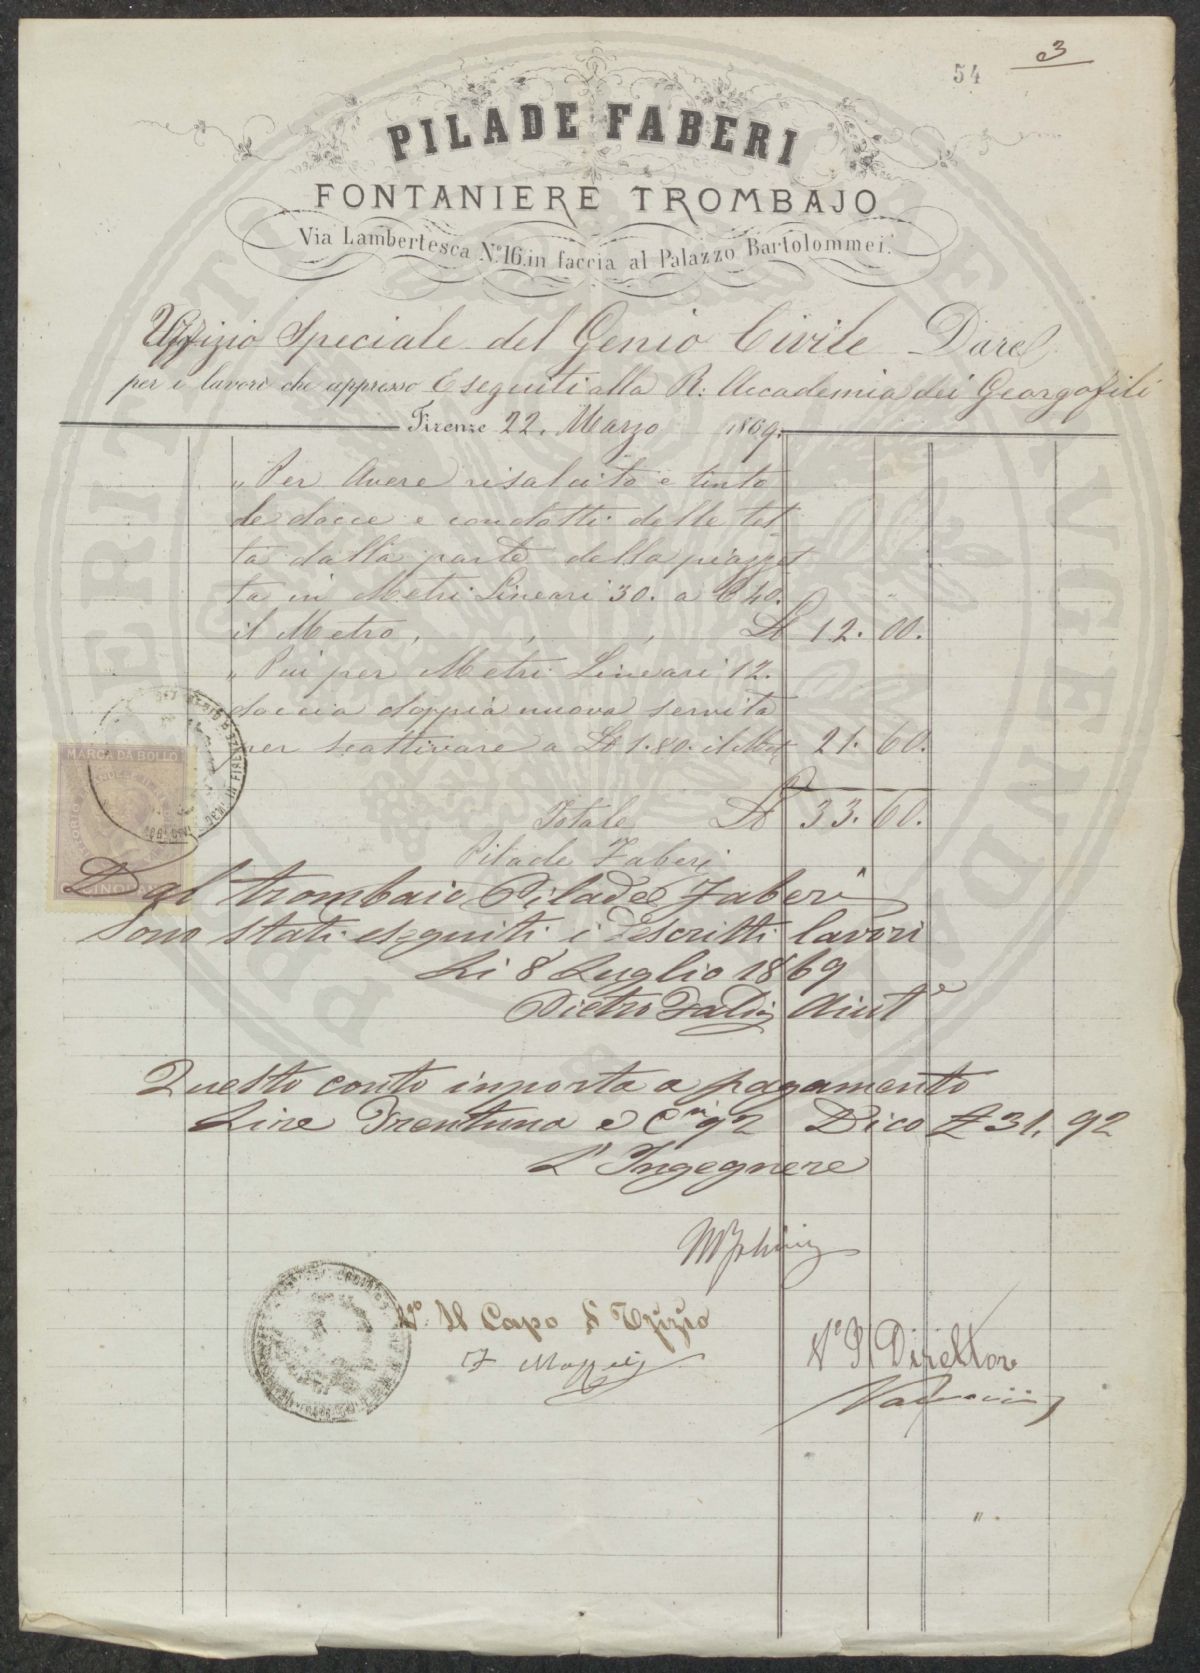 3
54
PILADE FABERI
FONTANIERE TROMBAJO
Via Lambertesca N.º 16. in faccia al Palazzo Bartolommei.
Uffizio Speciale del Genio Civile Dare
per i lavori che appresso Eseguiti alla R: Accademia dei Georgofili
Firenze 22. Marzo 1869.
„ Per Avere risalcito e tinto
le docce e condotti delle tet
ta dalla parte della piazzet
ta in Metri Lineari 30. a C 40.
il Metro, , , Lt 12. 00.
„ Piu per Metri Lineari 12.
doccia doppia nuova servita
per scattivare a Lt 1.80. il Met 21. 60.
Totale Lt 33. 60.
Pilade Faberi
MARCA DA BOLLO
Dal trombaio Pilade Faberi
sono stati eseguiti i descritti lavori
Li 8 Luglio 1869
Pietro Aiutᵉ
Questo conto inporta a pagamento
Lire Trentuna e Cⁿⁱ 92 Dico £ 31, 92
L'Ingegnere
Vº. Il Capo d'Uffizio
Vº Il Direttore